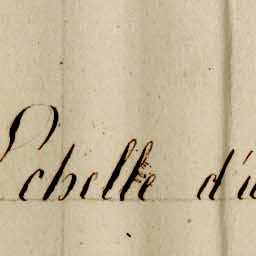 Echelle d'u